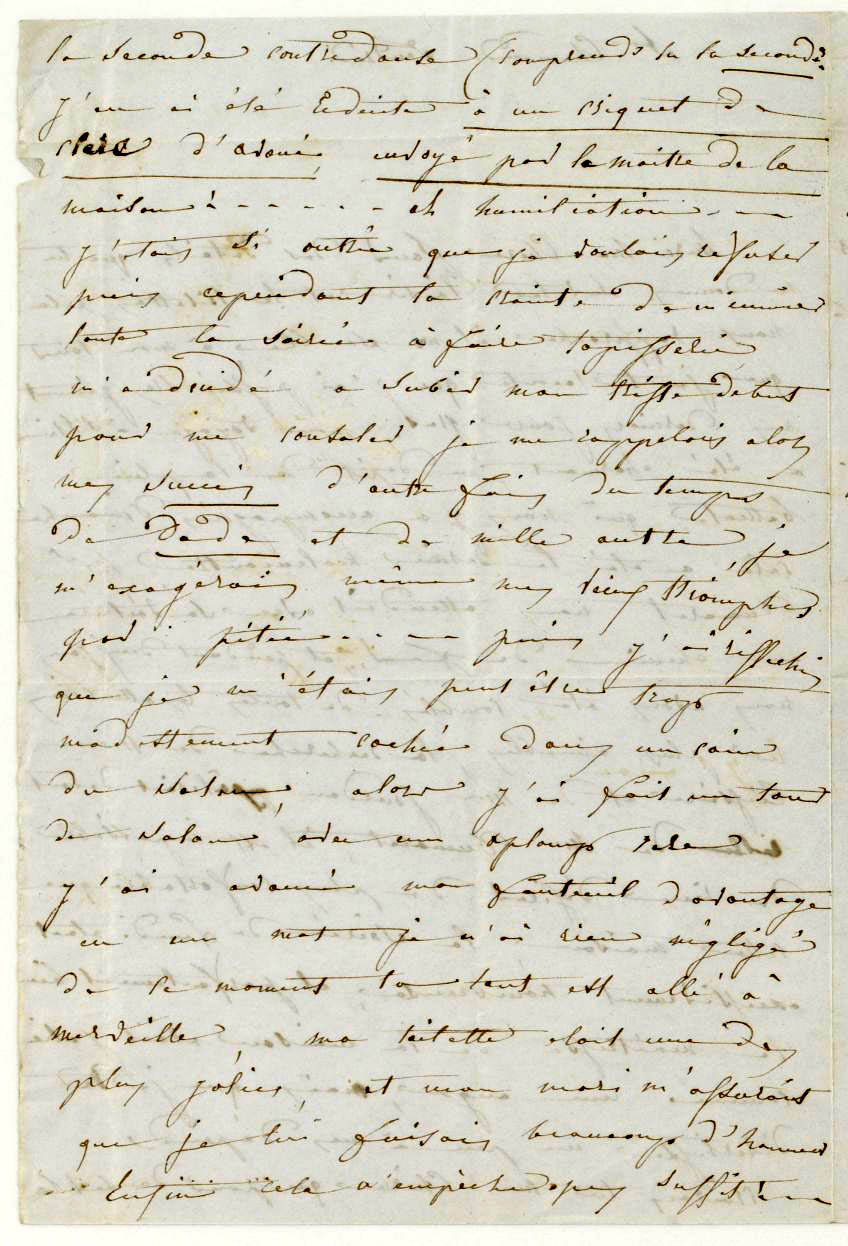 la seconde contredanse (comprends tu la seconde
j'en ai été réduite à un criquet de
clerc d'avoué envoyé par le maitre de la
maison! - - - - - - oh humiliation - - -
j'étais si outrée que je voulais refuser
puis cependant la crainte de m'ennuier
toute la soirée à faire tapisserie
m'a décidé a subir mon triste debut
pour me consoler je me rappelois alors
mes succès d'autre fois du temps
de Dede et de mille autre je
m'exagérais même mes vieux triomphes
par pitié - - - - puis j'ai réfléchi
que je m'étais peut être trop
modestement cachée dans un coin
du salon, alors j'ai fait un tour
de salon avec un aplomb rare
j'ai avancé mon fauteuil davantage
en un mot je n'ai rien négligé
de ce moment la tout est allé à
merveille ma toilette etait une des
plus jolies, et mon mari m'assurant
que je lui faisais beaucoup d'honneur
Enfin cela n'empêche pas suffit! - -